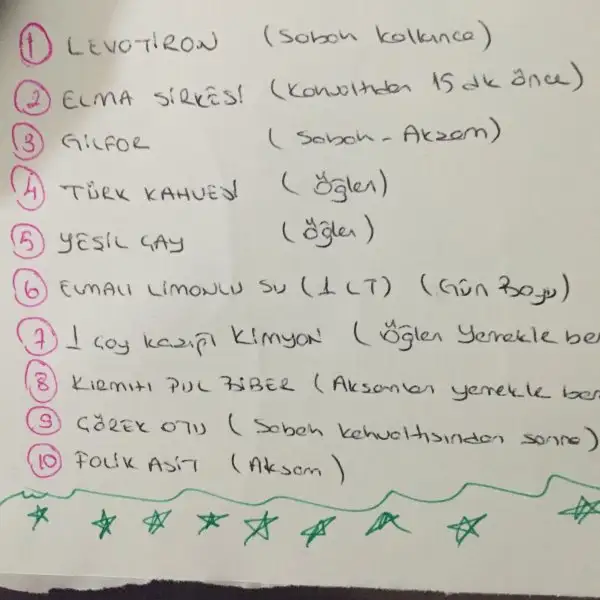 1 LEVOTİRON (Sabah kalkınca)
2 ELMA SİRKESİ (Kahvaltıdan 15 dk önce)
3 GİLFOR (Sabah - Akşam)
4 TÜRK KAHVESİ (Öğlen)
5 YEŞİL ÇAY (Öğlen)
6 ELMALI LİMONLU SU (1 LT) (Gün Boyu)
7 1 çay kaşığı KİMYON (Öğlen Yemekle be
8 KIRMIZI PUL BİBER (Akşamları yemekle ber
9 ÇÖREK OTU (Sabah kahvaltısından sonra)
10 FOLİK ASİT (Akşam)